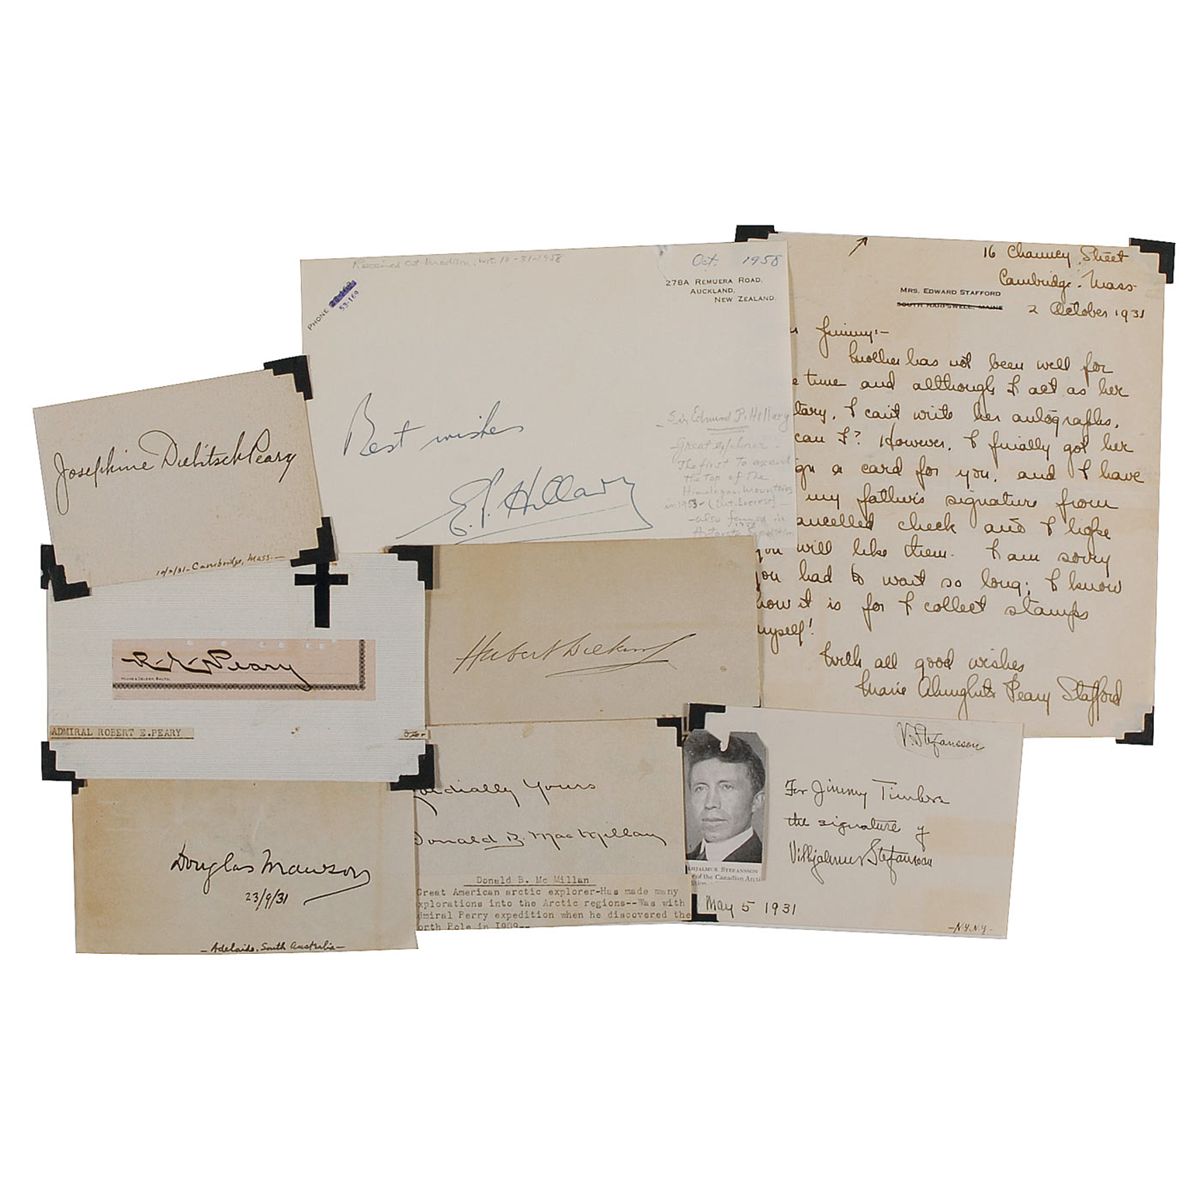 Josephine Diebitsch Peary
10/2/31-Cambridge, Mass.-
Received at Madison, Wis. 10-31-1958
Oct. 1958
PHONE
53-169
278A REMUERA ROAD,
AUCKLAND,
NEW ZEALAND.
Best wishes
E.P. Hillary
Sir Edmund P. Hillary
Great explorer -
The first to ascend
the top of the
Himalayan Mountains
in 1953-
-also famous in
16 Chauncy Street
Cambridge. Mass.
MRS. EDWARD STAFFORD
SOUTH HARPSWELL, MAINE
2 October 1931
Jimmy:-
Mother has not been well for
time and although I act as her
tary, I can't write her autographs,
can I? However, I finally got her
gn a card for you, and I have
my father's signature from
ancelled check and I hope
you will like them. I am sorry
you had to wait so long; I know
how it is for I collect stamps
myself!
With all good wishes
Marie Ahnighito Peary Stafford
R.E. Peary
ADMIRAL ROBERT E.PEARY
Hubert Wilkins
Douglas Mawson
23/9/31
-Adelaide, South Australia-
Cordially Yours
Donald B. MacMillan
Donald B. Mc Millan
Great American arctic explorer-Has made many
explorations into the Arctic regions--Was with
Admiral Perry expedition when he discovered the
North Pole in 1909--
V. Stefansson
For Jimmy Timbers
the signature of
Vilhjalmur Stefansson
HJALMUR STEFANSSON
of the Canadian Arcti
May 5 1931
-N.Y.N.Y.-